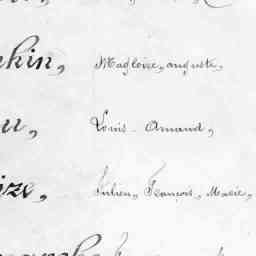 kin, Magloire, auguste,
u, Louis - Amand,
ize, Julien, François, Marie,